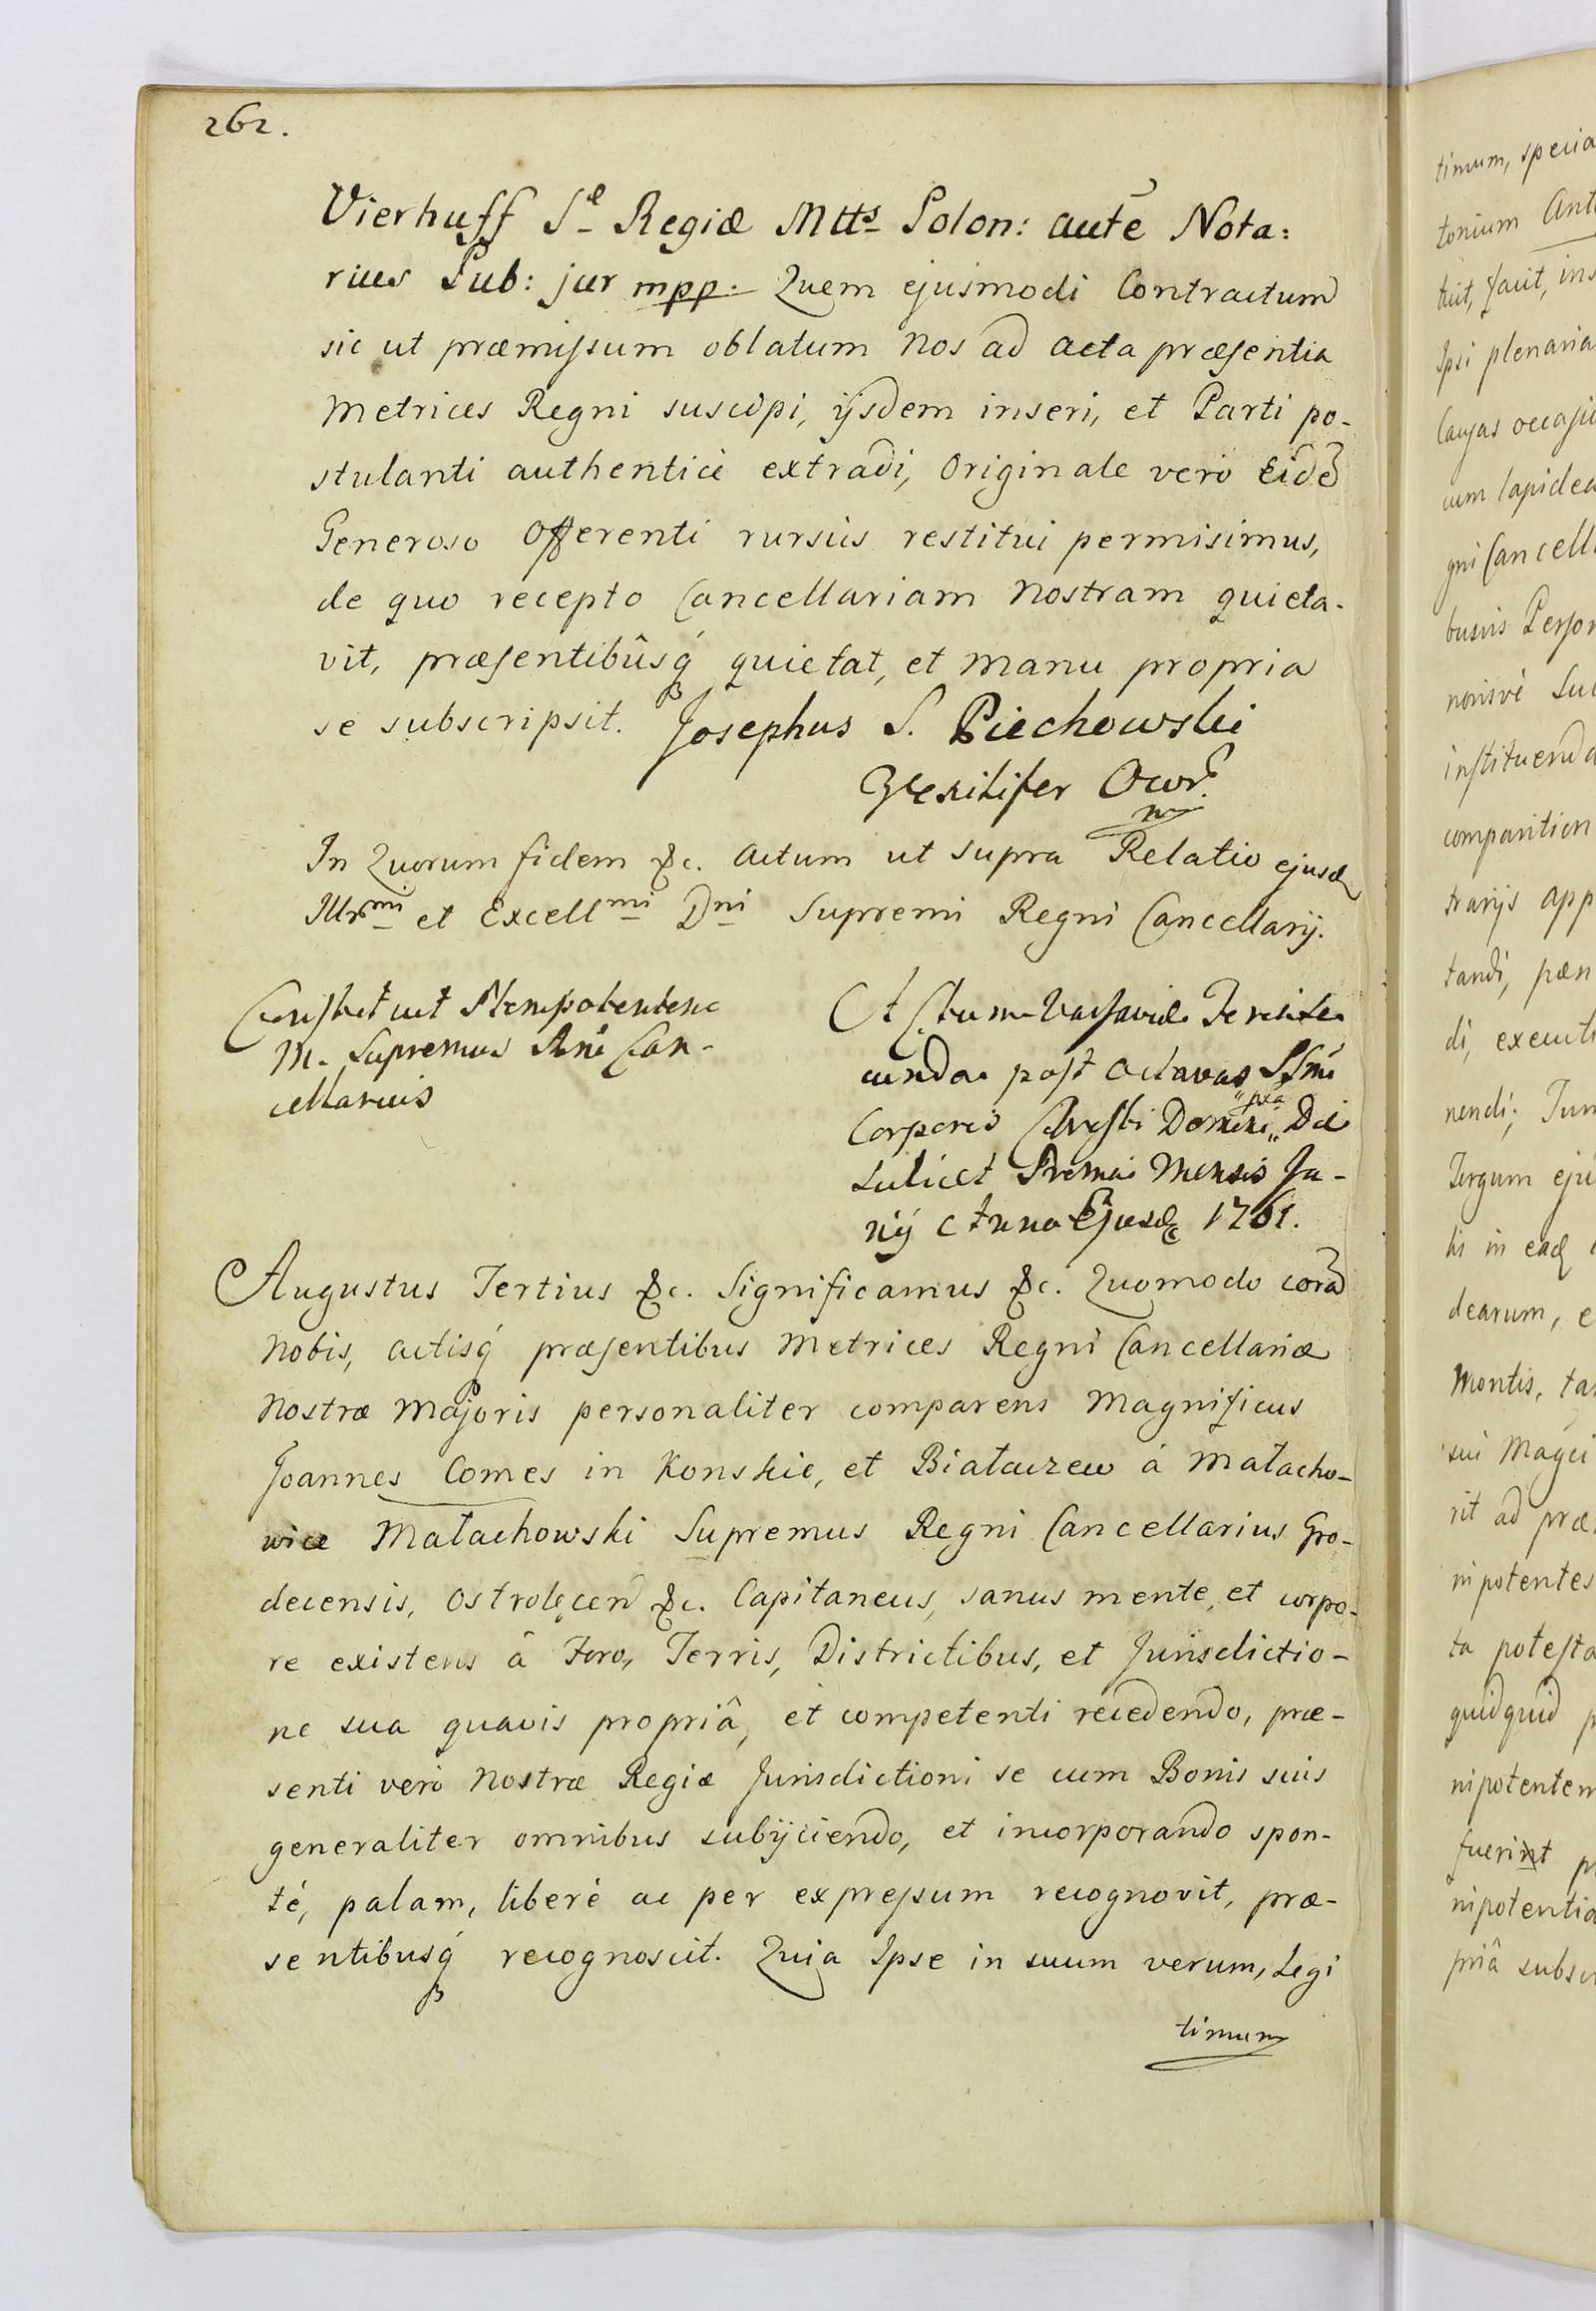 262.
Vierhuff Sæ Regiæ Mtts Polon: autē Nota:
rius Pub: jur mpp. Quem ejusmodi Contractum
sic ut præmissum oblatum Nos ad acta præsentia
Metrices Regni suscipi, ijsdem inseri, et Parti po-
stulanti authenticè extradi, Originale verò Eidē
Generoso Offerenti rursùs restitui permisimus,
de quo recepto Cancellariam Nostram quieta-
vit, præsentibûsq́ quietat, et manu propria
se subscripsit. Josephus S. Piechowski
Vexilifer
In Quorum fidem &c. Actum ut supra Relatio ejusd
Illrmi et Excellmi Dni Supremi Regni Cancellarij.
Constituit Plenipotentem
M. Supremus Rni Can-
cellarius
Actum Varsaviæ Feria se
cunda post Octavas SSmi
Corporis Christi Domini Die
scilicet Prima Mensis Ju-
nij Anno Ejusd 1761.
Augustus Tertius &c. Significamus &c. Quomodo corā
Nobis, actisq́ præsentibus Metrices Regni Cancellariæ
Nostræ Majoris personaliter comparens Magnificus
Joannes Comes in Konskie, et Białaczew à Małacho-
wice Małachowski Supremus Regni Cancellarius Gro-
decensis, Ostrolęcen &c. Capitaneus, sanus mente, et corpo-
re existens à Foro, Terris, Districtibus, et Jurisdictio-
ne sua quavis propriâ, et competenti recedendo, præ-
senti verò Nostræ Regiæ Jurisdictioni se cum Bonis suis
generaliter omnibus subijciendo, et incorporando spon-
té, palam, liberè ac per expressum recognovit, præ-
sentibusq́ recognoscit. Quia Ipse in suum verum, Legi
timum
timum, specia
tonium Ant
tuit, facit, ins
Ipsi plenaria
Causas occasio
cum lapidea
gni Cancell
busvis Person
norisvè Sub
instituenda
comparition
trarijs app
tandi, pæn
di, executi
nendi; Tum
Tergum eju
lis in ead
dearum, e
Montis, ta
sui Magci
rit ad præ
nipotentes
ta potesta
quidquid p
nipotentem
fuerint p
nipotentia
priâ subsc